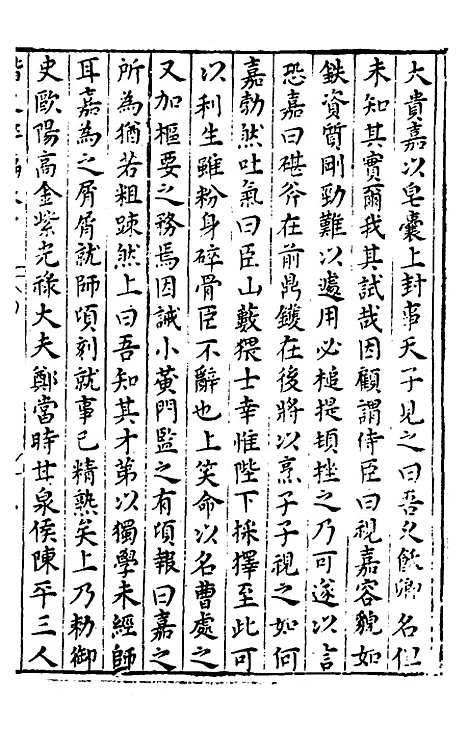 大貴嘉以皂囊上封事天子見之曰吾久飫卿名但
未知其實爾我其試哉因顧謂侍臣曰視嘉容貌如
鉄資質剛勁難以遽用必槌提頓挫之乃可遂以言
恐嘉曰碪斧在前鼎鑊在後將以烹子子視之如何
嘉勃然吐氣曰臣山藪猥士幸惟陛下採擇至此可
以利生雖粉身碎骨臣不辭也上笑命以名曹處之
又加樞要之務焉因誡小黃門監之有頃報曰嘉之
所為猶若粗踈然上曰吾知其才弟以獨學未經師
耳嘉為之屑屑就師頃刻就事已精熟矣上乃勑御
史歐陽高金紫光祿大夫鄭當時甘泉侯陳平三人